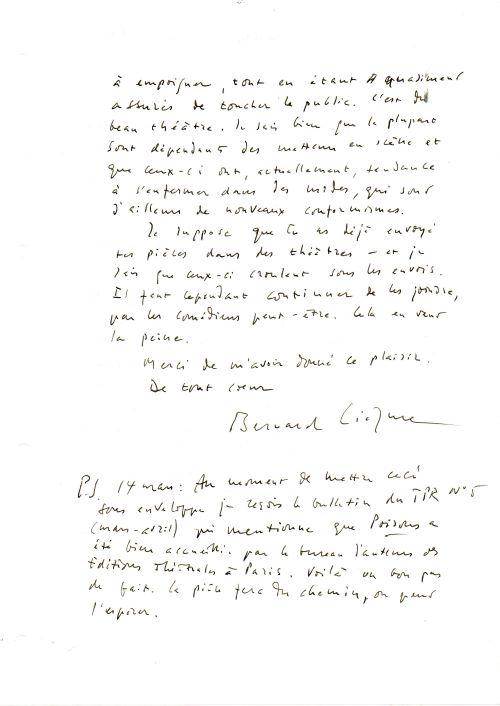 à empoigner, tout en étant quasiment
assurés de toucher le public. C'est du
beau théâtre. Je sais bien que la plupart
sont dépendants des metteurs en scène et
que ceux-ci ont, actuellement, tendance
à s'enfermer dans des modes, qui sont
d'ailleurs de nouveaux conformismes.
Je suppose que tu as déjà envoyé
tes pièces dans des théâtres – et je
sais que ceux-ci croulent sous les envois.
Il faut cependant continuer de les joindre,
par les comédiens peut-être. Cela en vaut
la peine.
Merci de m'avoir donné ce plaisir.
De tout cœur
Bernard
P.S. 14 mars : Au moment de mettre ceci
sous enveloppe je reçois le bulletin du TPR N° 5
(mars-avril) qui mentionne que Poisons a
été bien accueilli par le bureau d'auteurs des
Éditions Théâtrales à Paris. Voilà un bon pas
de fait. La pièce fera du chemin, on peut
l'espérer.